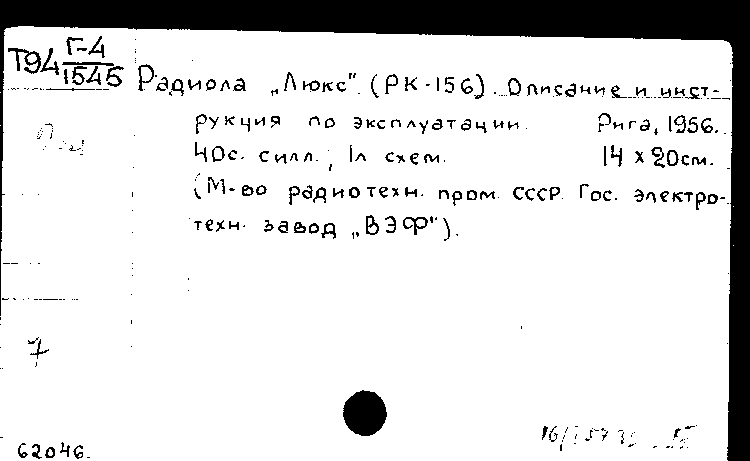 Т94 Г-4
1545
Радиола „Люкс". (РК-156). Описание и инст-
рукция по эксплуатации. Рига, 1956.
40с. с илл.; 1л схем. 14 х 20см.
(М-во радиотехн. пром. СССР. Гос. электро-
техн. завод „ВЭФ").
7
62046.